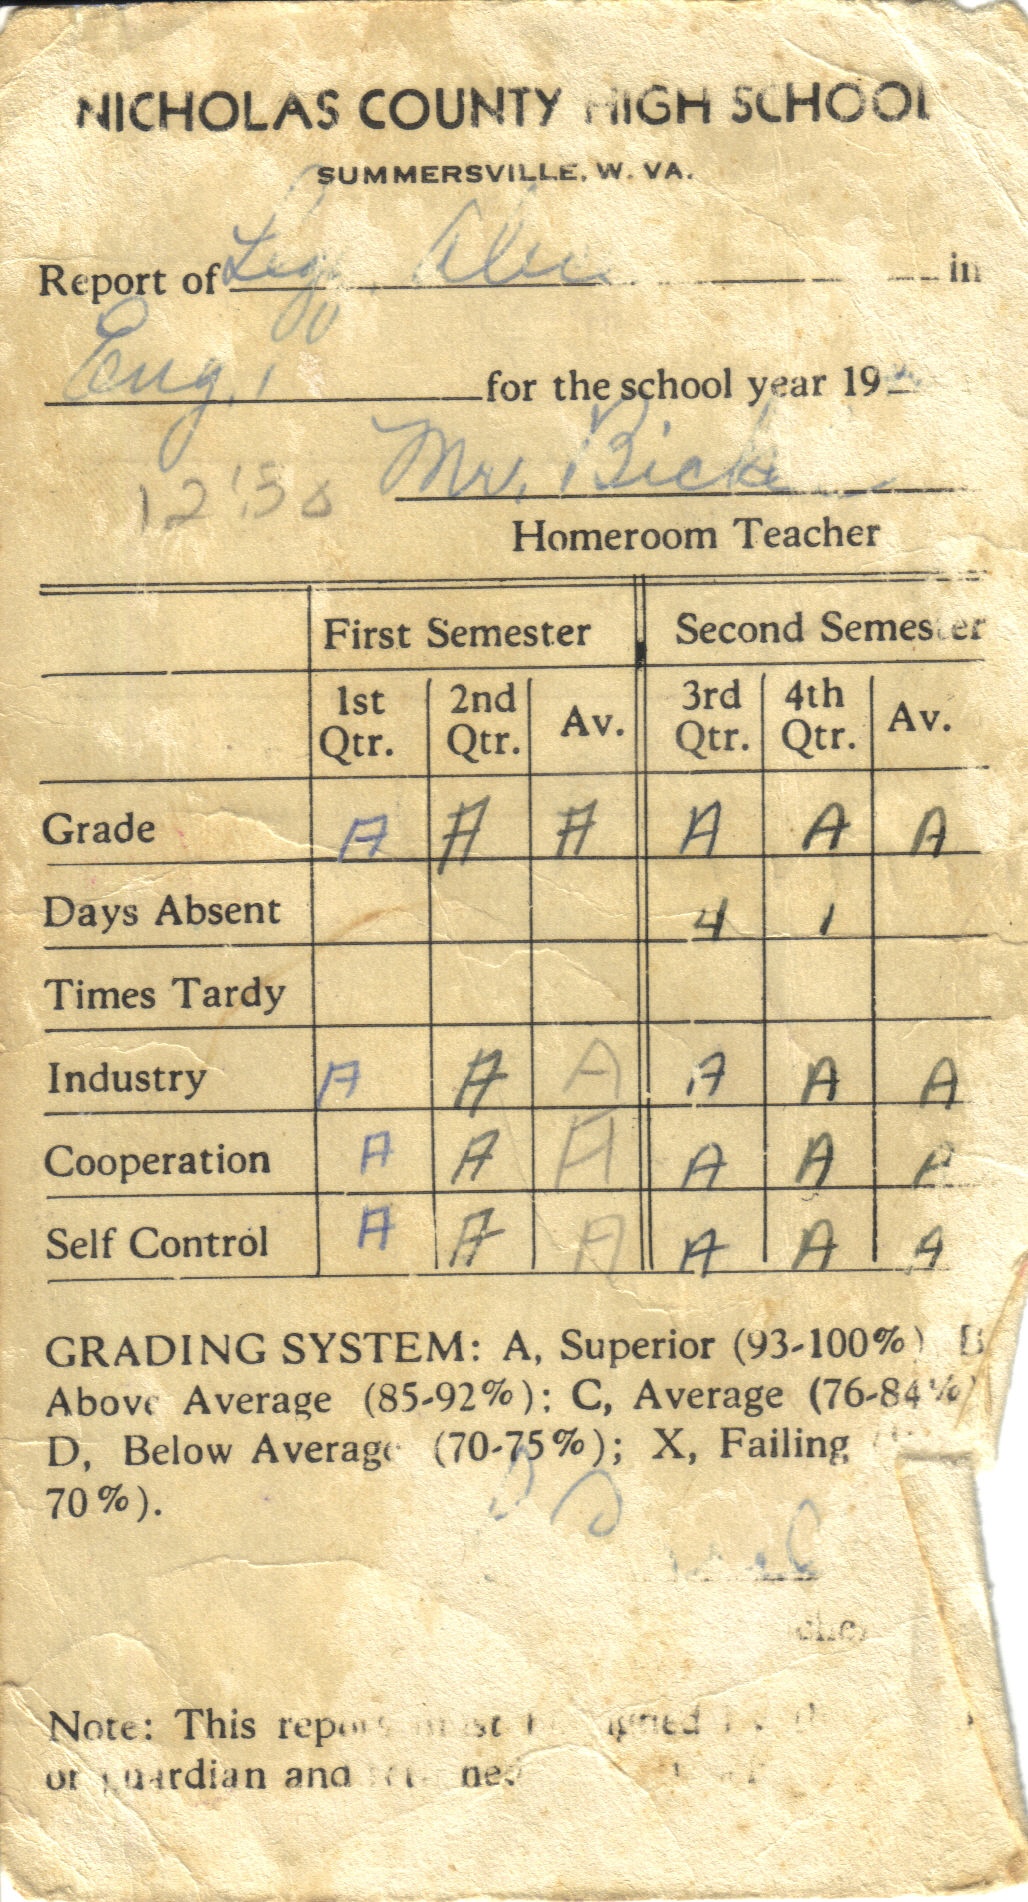 NICHOLAS COUNTY HIGH SCHOOL
SUMMERSVILLE, W. VA.
Report of in
Eng. 1 for the school year 19
Mr.
12:30
Homeroom Teacher
First Semester Second Semester
1st Qtr. 2nd Qtr. Av. 3rd Qtr. 4th Qtr. Av.
Grade A A A A A A
Days Absent 4 1
Times Tardy
Industry A A A A A A
Cooperation A A A A A A
Self Control A A A A A A
GRADING SYSTEM: A, Superior (93-100%) B
Above Average (85-92%); C, Average (76-84%)
D, Below Average (70-75%); X, Failing
70%).
Note: This report must be signed
or guardian and returned